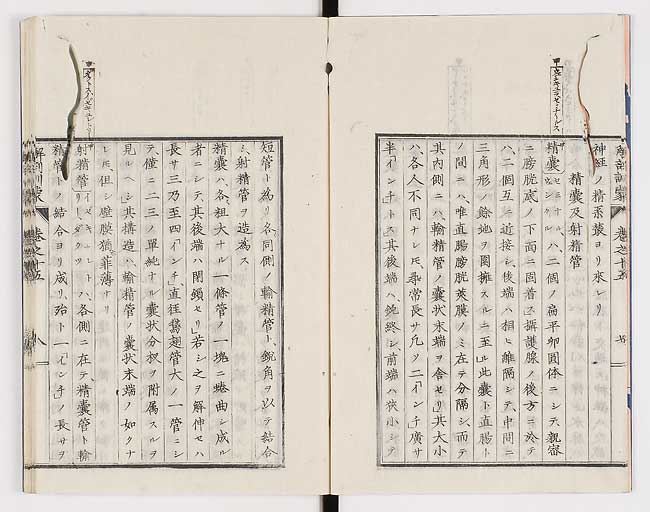 神経ノ精系叢ヨリ来レリ
精囊及射精管
精囊ハ二個ノ扁平卵圓体ニシテ親密
ニ膀胱底ノ下面ニ固着シ摂護腺ノ後方ニ於テ
ハ二個互ニ近接シ後端ハ相ヒ離隔シテ中間ニ
三角形ノ餘地ヲ圍擁スルニ至ル此囊ト直腸ト
ノ間ニハ唯直腸膀胱莢膜ノミ在テ分隔シ而テ
其内側ニハ輸精管ノ囊状末端ヲ含セリ其大小
ハ各人不同ナレモ尋常長サ凡ソ二「インチ」廣サ
半「インチ」トス其後端ハ鈍終シ前端ハ狹小シテ
短管ト為リ各同側ノ輸精管ト鋭角ヲ以テ結合
シ射精管ヲ造為ス
精囊ハ各粗大ナル一條管ノ一塊ニ蜷曲シ成ル
者ニシテ其後端ハ閉鎖セリ若シ之ヲ解伸セハ
長サ三乃至四「インチ」直徑鵞翅管大ノ一管ニシ
テ僅ニ二三ノ單純ナル囊状分杈ヲ附属スルヲ
見ルヘシ其構造ハ輸精管ノ囊状末端ノ如クナ
レモ但シ壁膜猶菲薄ナリ
射精管ハ各側ニ在テ精囊管ト輸
精管ト結合ヨリ成リ殆ト一「インチ」ノ長サヲ
解剖訓蒙
卷之十五
八